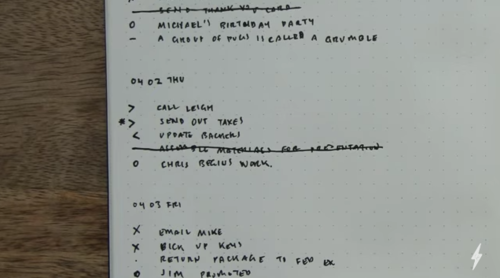 SEND THANK YOU CARD
O MICHAEL'S BIRTHDAY PARTY
– A GROUP OF PUGS IS CALLED A GRUMBLE
04 02 THU
> CALL LEIGH
*> SEND OUT TAXES
< UPDATE BACKERS
ASSEMBLE MATERIALS FOR PRESENTATION
O CHRIS BEGINS WORK.
04 03 FRI
X EMAIL MIKE
X PICK UP KEYS
· RETURN PACKAGE TO FED EX
O JIM PROMOTED